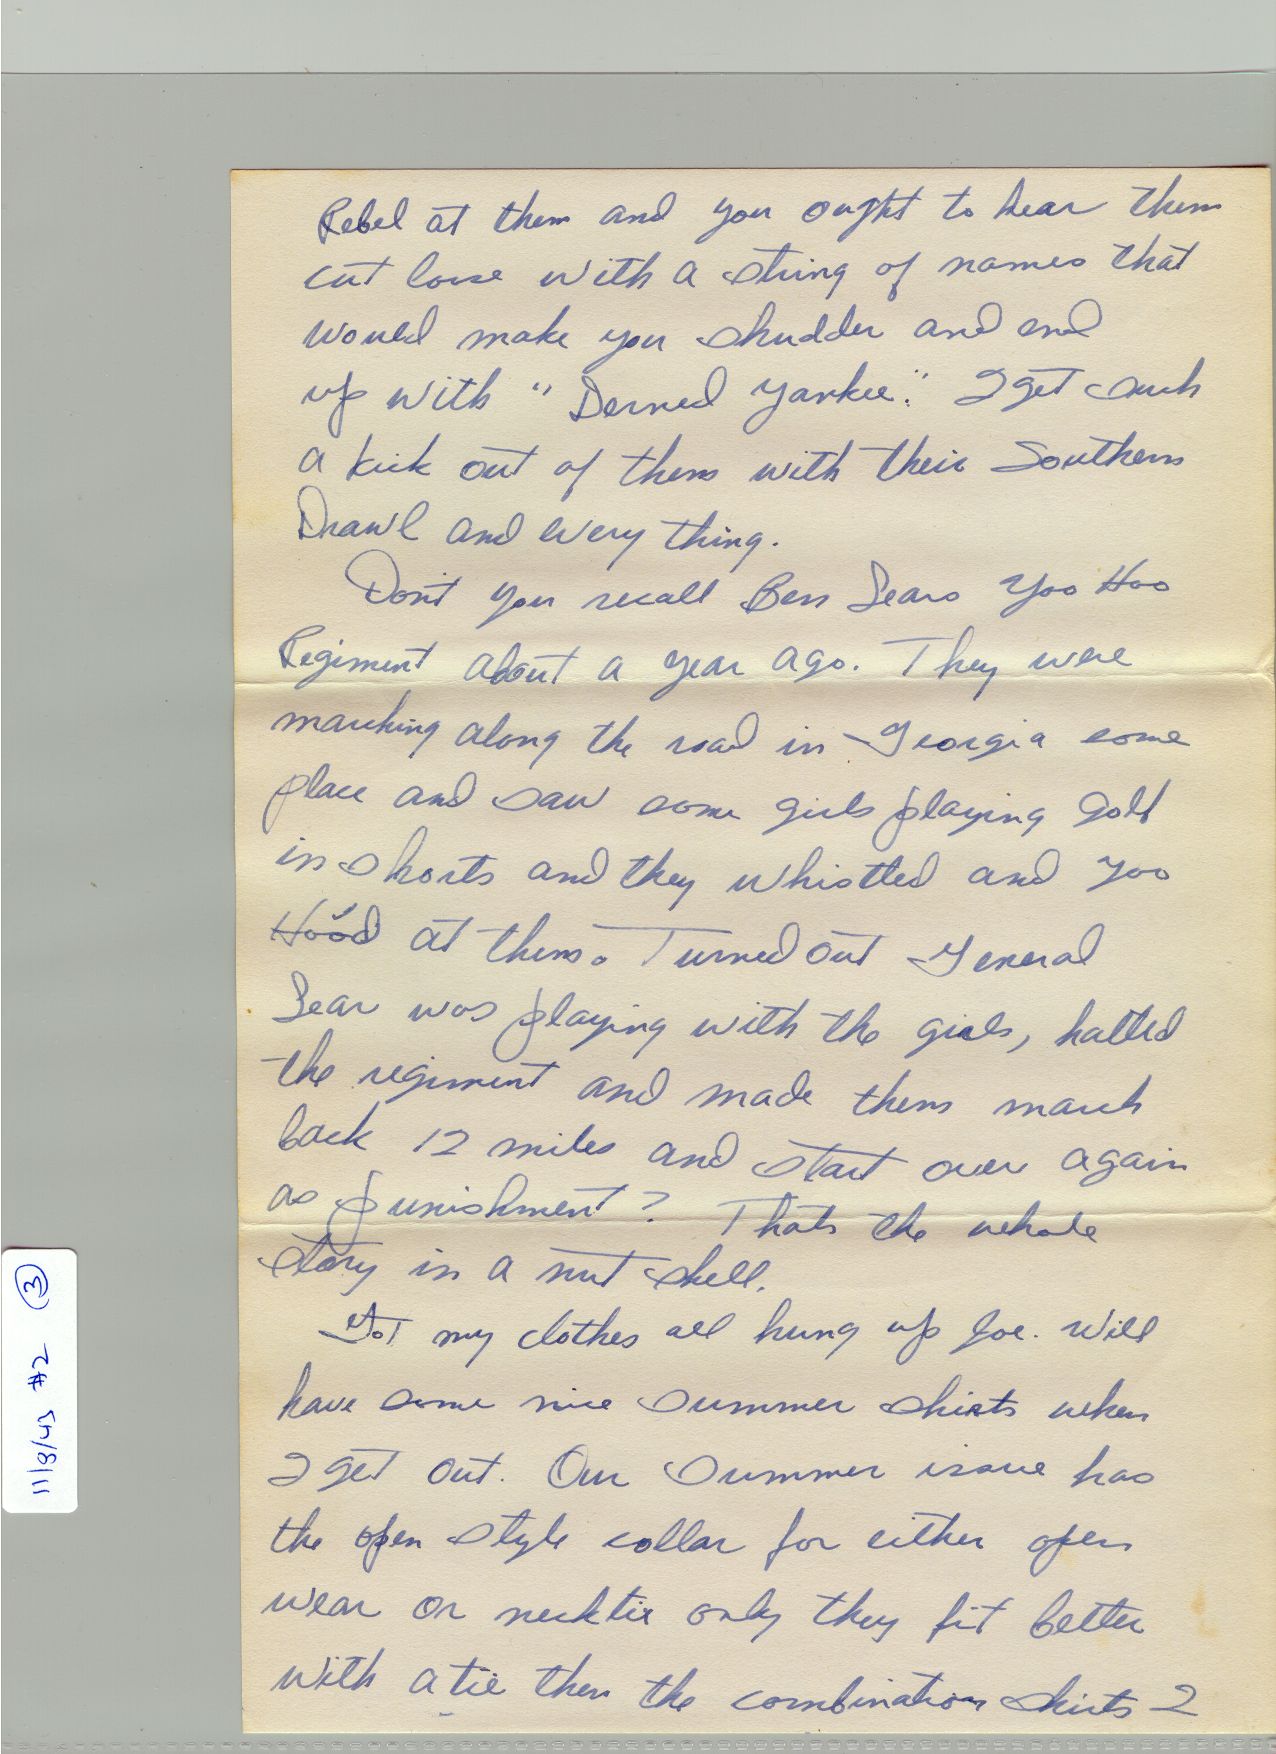 Rebel at them and you ought to hear them
cut loose with a string of names that
would make you shudder and end
up with "Derned Yankee." I get such
a kick out of them with their Southern
Drawl and every thing.
Don't you recall Ben Lears Yoo Hoo
Regiment about a year ago. They were
marching along the road in Georgia some
place and saw some girls playing golf
in shorts and they whistled and yoo
Hooed at them. Turned out General
Lear was playing with the girls, halted
the regiment and made them march
back 12 miles and start over again
as punishment? Thats the whole
story in a nut shell.
Got my clothes all hung up Joe. Will
have some nice summer shirts when
I get out. Our summer issue has
the open style collar for either open
wear or necktie only they fit better
with a tie then the combination shirts I
11/8/43 #2 3